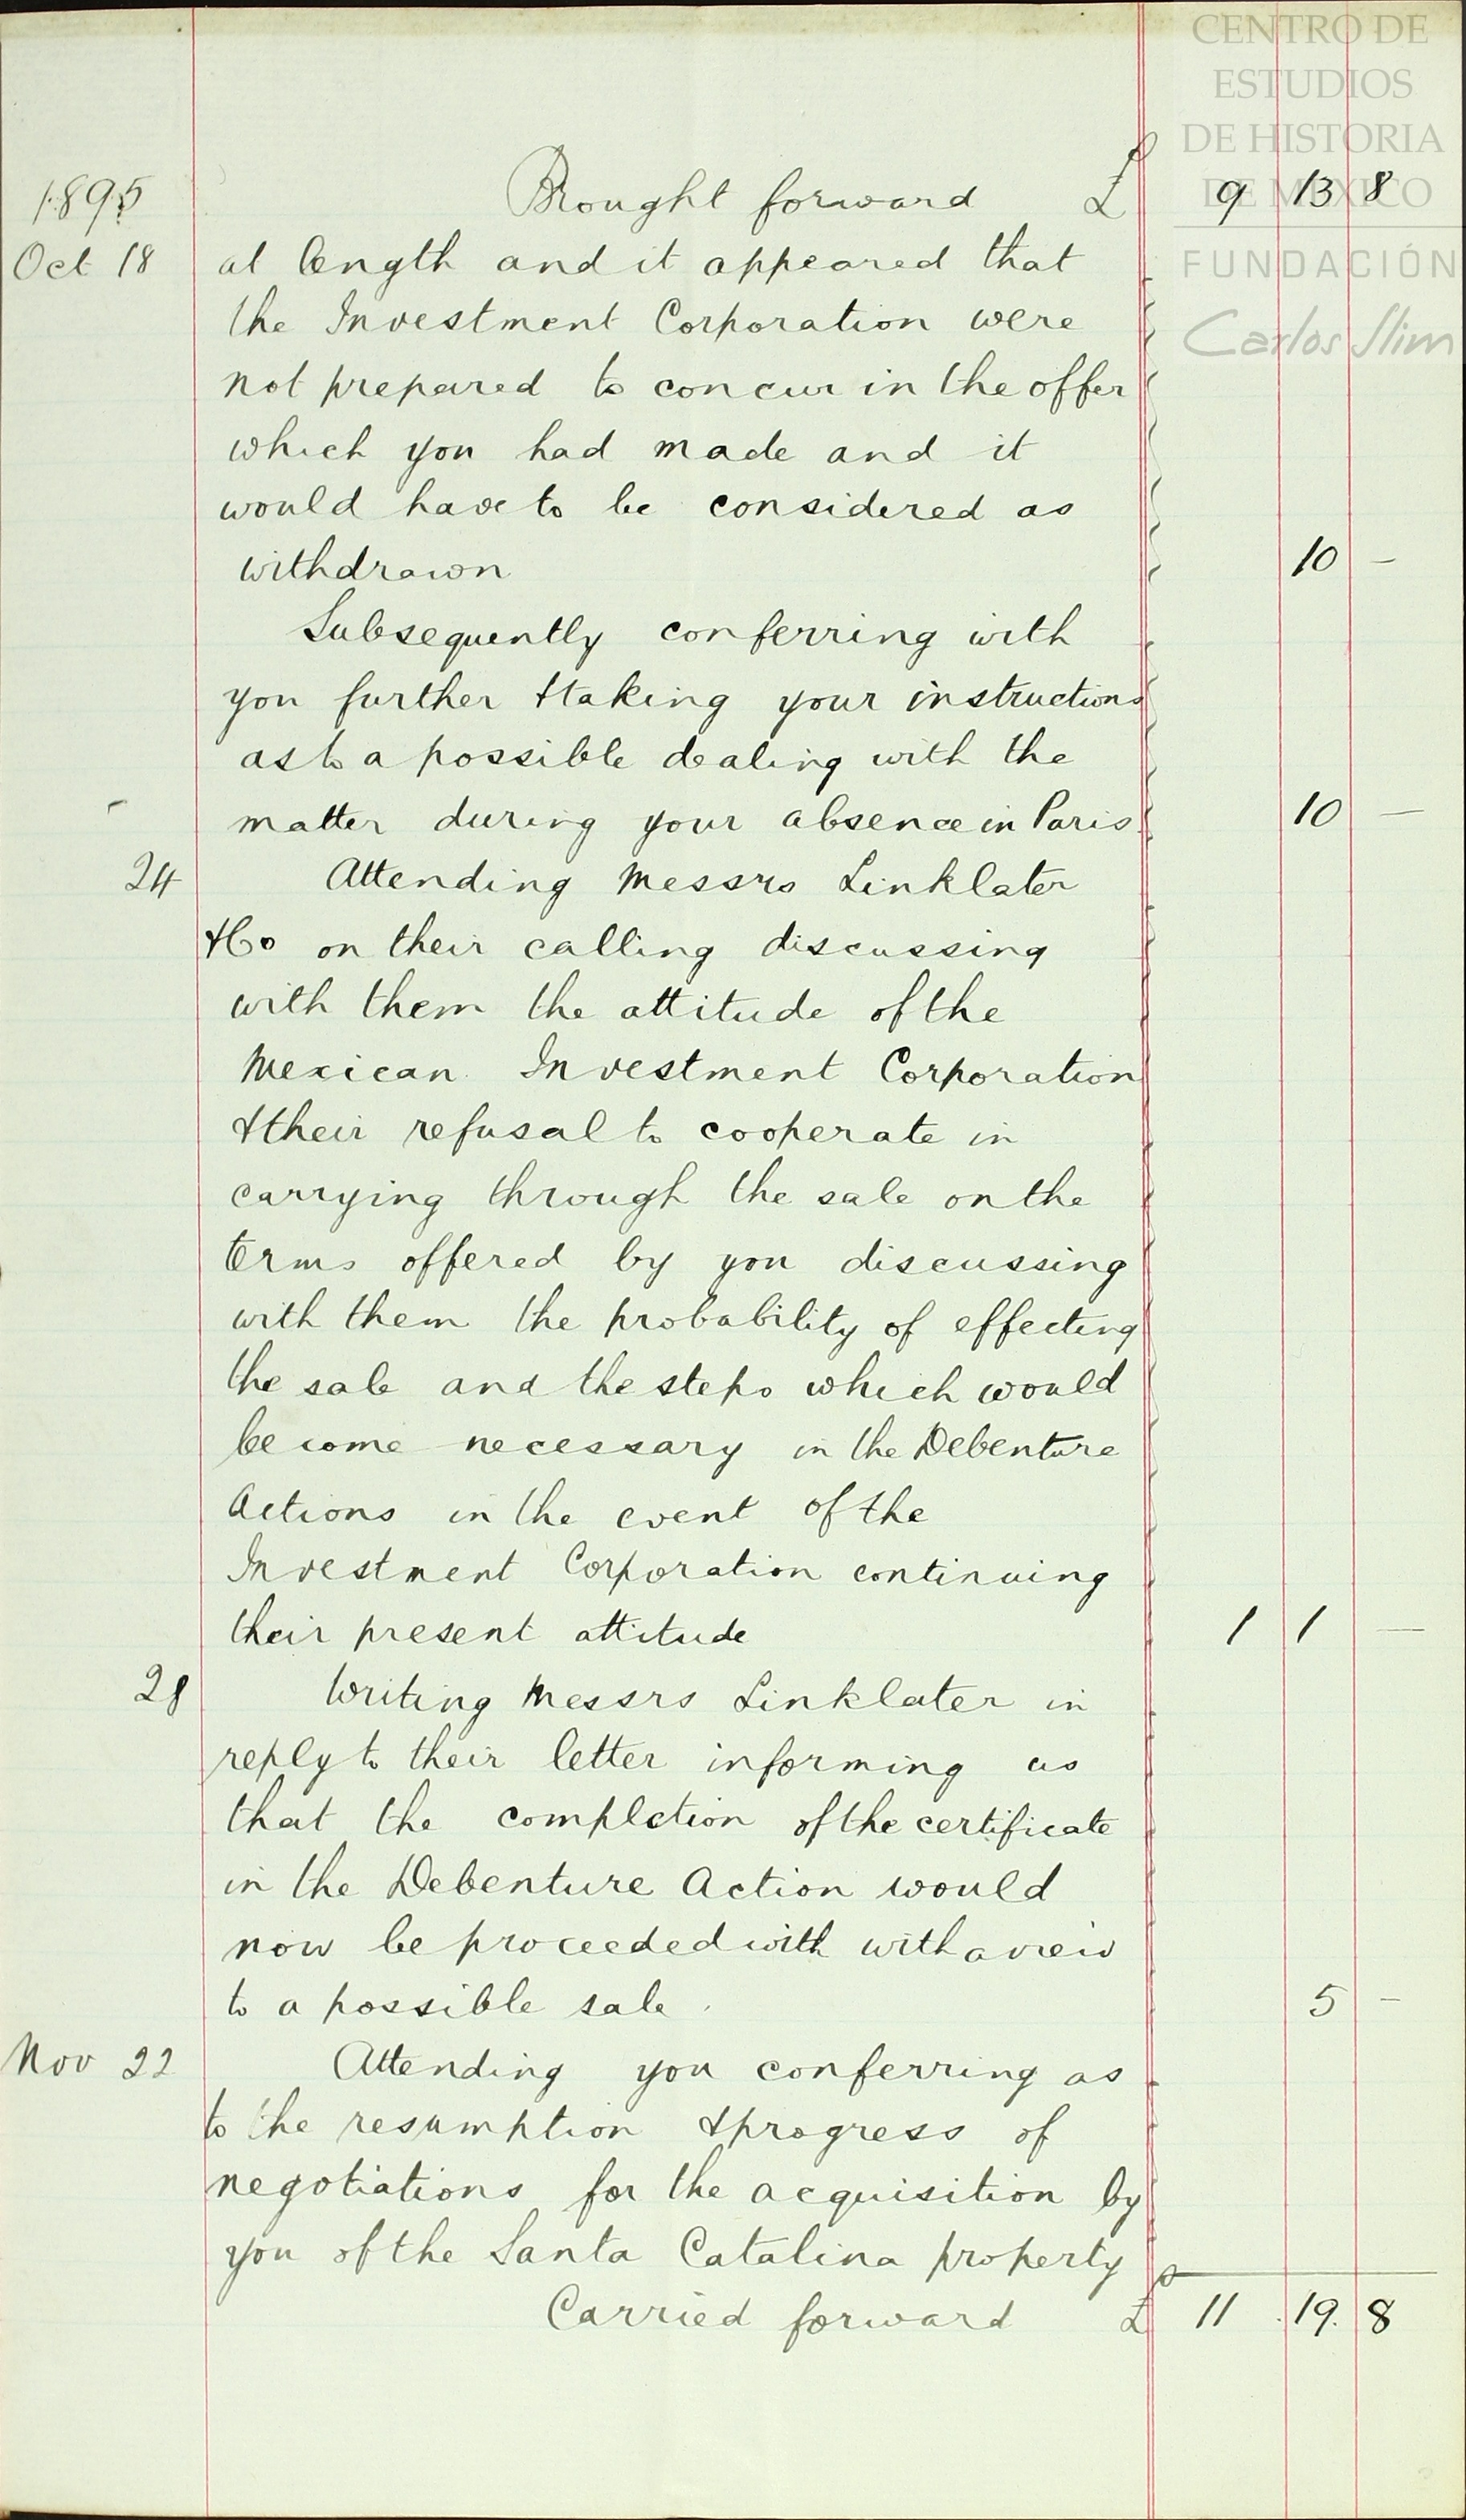 CENTRO DE
ESTUDIOS
DE HISTORIA
DE MÉXICO
FUNDACIÓN
Carlos Slim
1895 Brought forward £ 9 13 8
Oct 18 at length and it appeared that
the Investment Corporation were
not prepared to concur in the offer
which you had made and it
would have to be considered as
withdrawn 10 -
Subsequently conferring with
you further & taking your instructions
as to a possible dealing with the
matter during your absence in Paris 10 -
24 Attending Messrs Linklater
& Co on their calling discussing
with them the attitude of the
Mexican Investment Corporation
& their refusal to cooperate in
carrying through the sale on the
terms offered by you discussing
with them the probability of effecting
the sale and the steps which would
become necessary in the Debenture
Actions in the event of the
Investment Corporation continuing
their present attitude 1 1 -
28 Writing Messrs Linklater in
reply to their letter informing us
that the completion of the certificate
in the Debenture Action would
now be proceeded with with a view
to a possible sale. 5 -
Nov 22 Attending you conferring as
to the resumption & progress of
negotiations for the acquisition by
you of the Santa Catalina property
Carried forward £ 11 19. 8